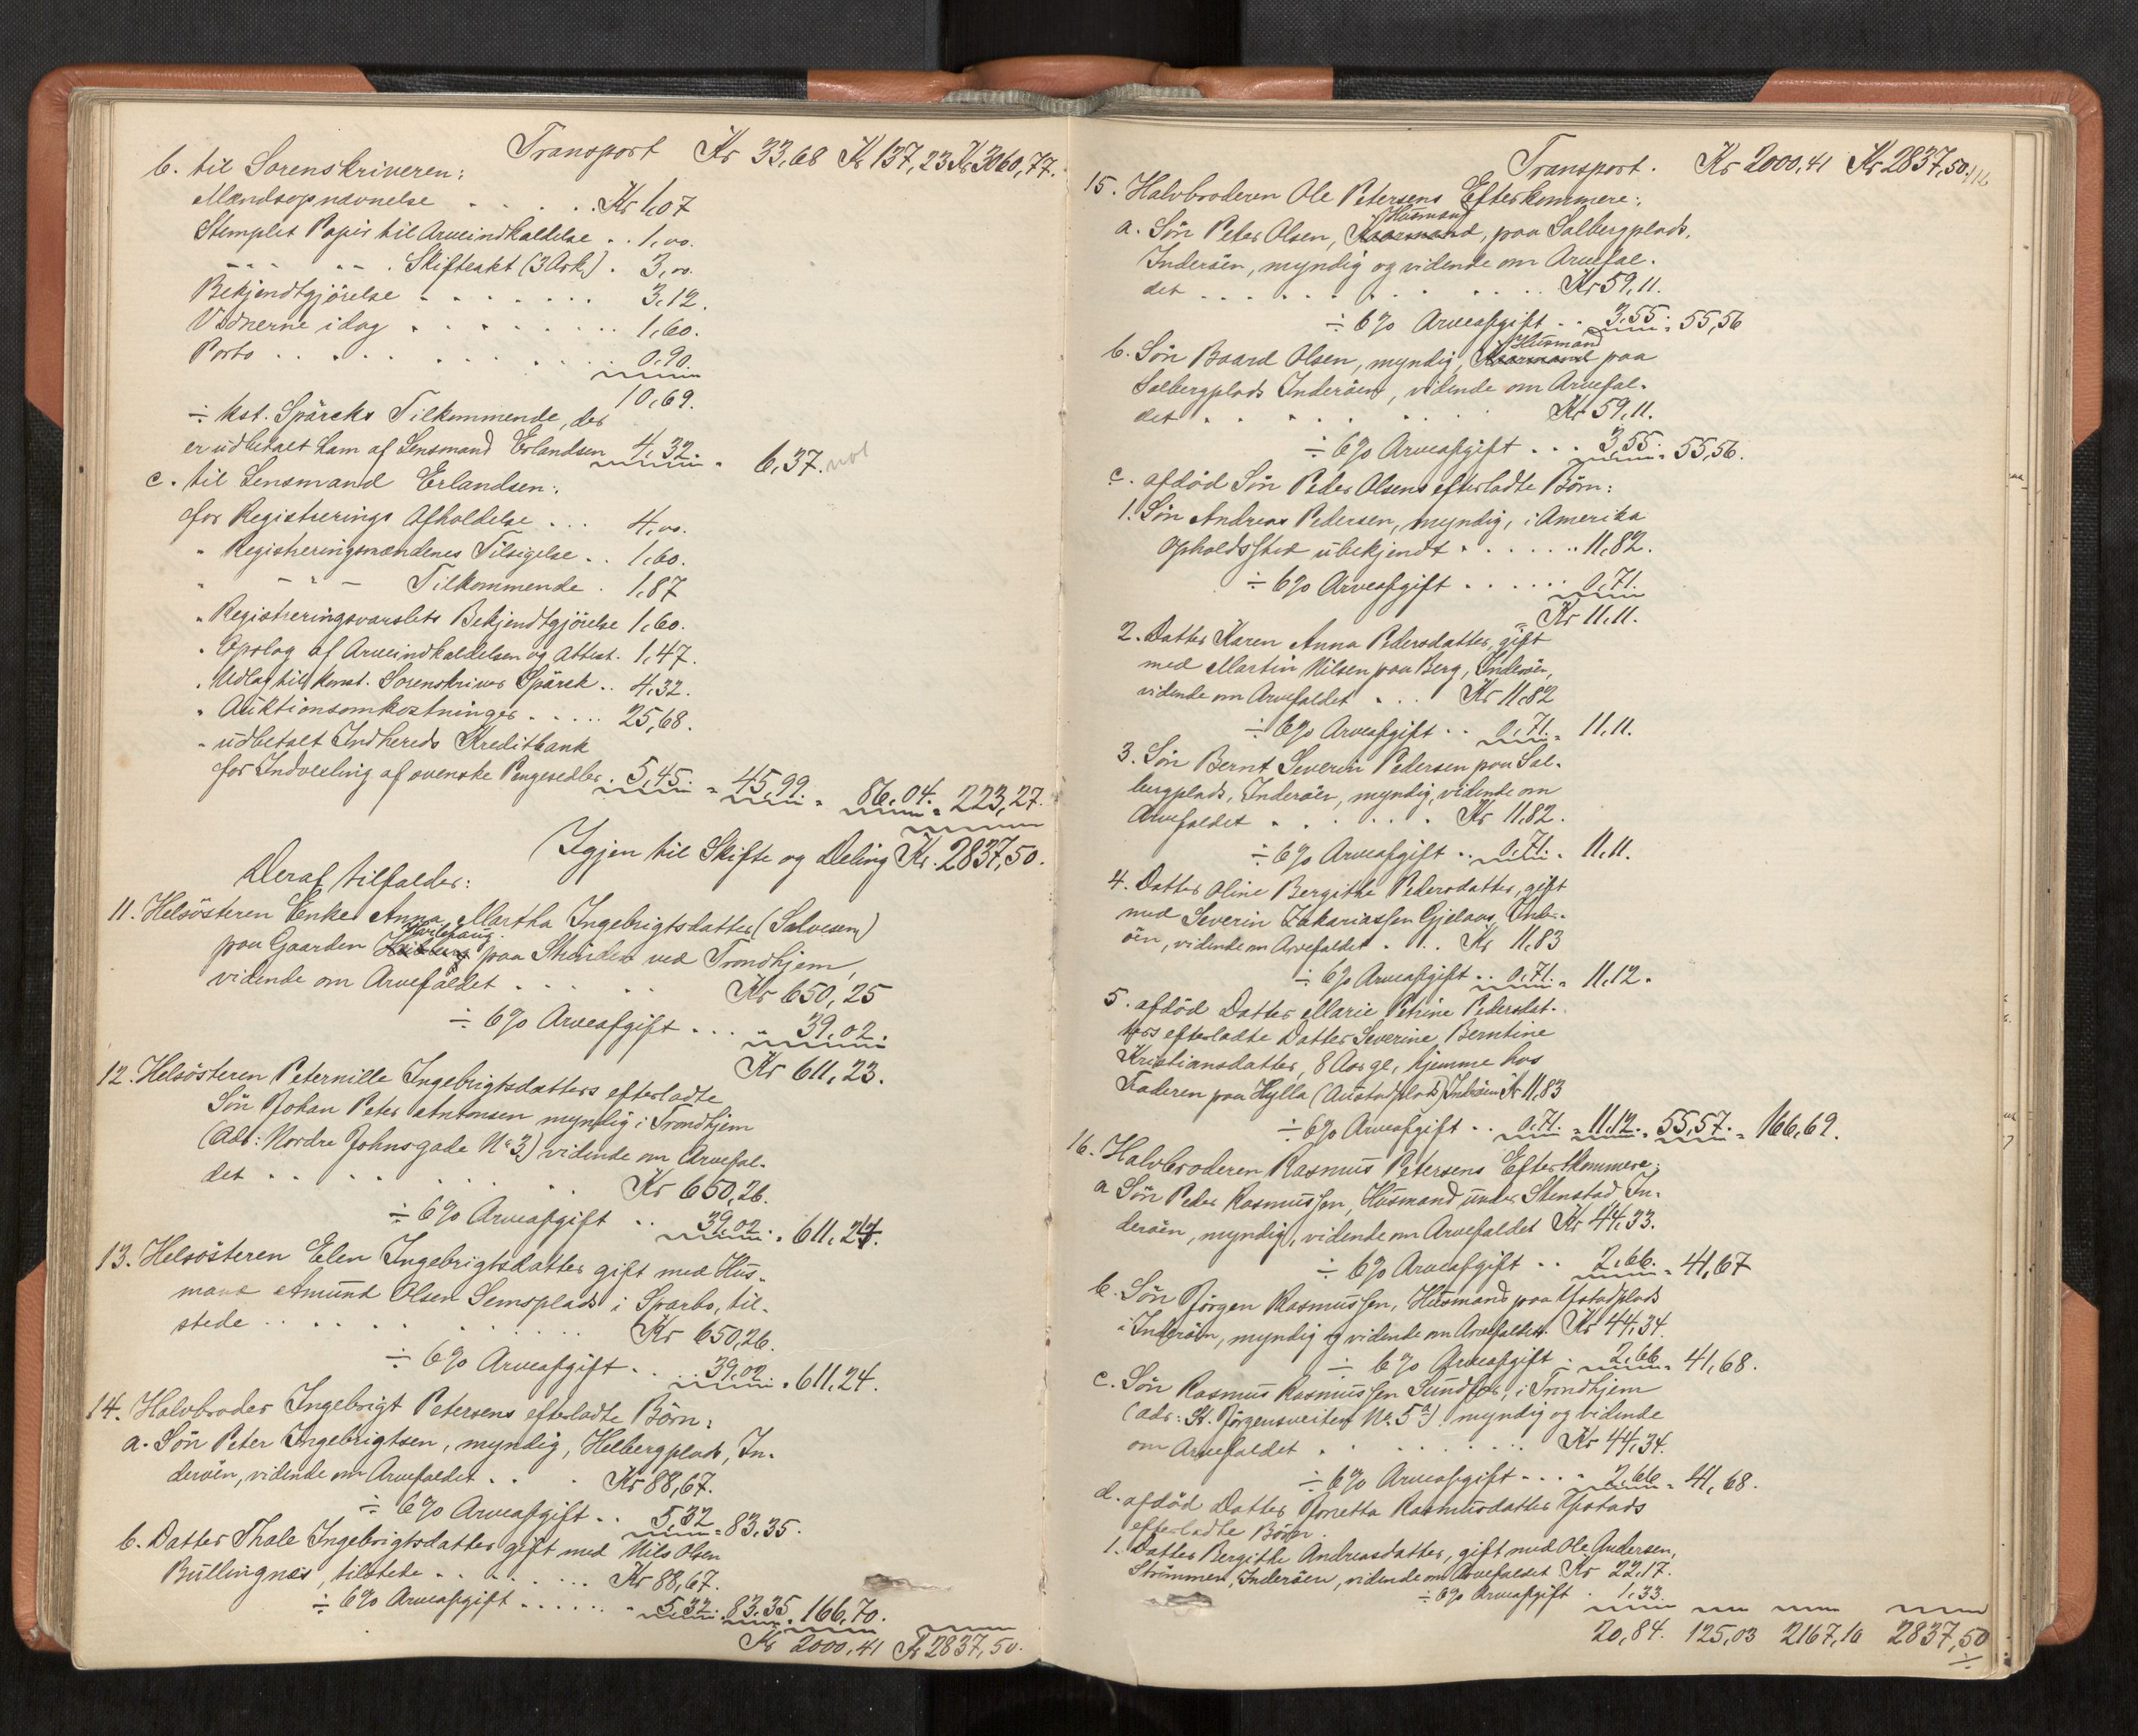 Transport Kr 33,68 Kr 137,23 Kr 3060,77.
b. til Sorenskriveren:
Mændsopnævnelse . . . . . Kr 1,07
Stemplet Papir til Arveindkaldelse . . 1,00.
-"- -"- . Skifteakt (3 Ark) . 3,00.
Bekjendtgjörelse . . . . . . . 3,12.
Vidnerne idag . . . . . . . . 1,60.
Porto . . . . . . . . . . 0,90.
10,69.
÷ kst. Spärcks Tilkommende, der
er udbetalt ham af Lensmand Erlandsen 4,32. " 6,37.
c. til Lensmand Erlandsen:
for Registrerings Afholdelse . . . 4,00.
" Registreringsmændenes Tilsigelse . . 1,60.
" - " - Tilkommende . 1,87
" Registreringsvarslets Bekjendtgjörelse 1,60.
" Opslag af Arveindkaldelsen og Attest. 1,47.
" Udlæg till konst. Sorenskriver Spärck . . 4,32.
" Auktionsomkostninger . . . . . 25,68.
" udbetalt Indhereds Kreditbank
for Indvexling af svenske Pengesedler . 5,45. " 45,99. " 86,04. " 223,27.
Igjen til Skifte og Deling Kr. 2837,50.
Deraf tilfalder:
11. Helsösteren Enke Anna Martha Ingebrigtsdatter (Salvesen)
paa Gaarden paa Strinden ved Trondhjem,
vidende om Arvefaldet . . . . . Kr 650,25
÷ 6% Arveafgift . . . " 39,02.
Kr 611,23.
12. Helsösteren Peternille Ingebrigtsdatters efterladte
Sön Johan Peter Antonsen myndig i Trondhjem
(Adr: Nordre Johnsgade No 3) vidende om Arvefal-
det . . . . . . . Kr 650,26.
÷ 6% Arveafgift . . 39,02. " 611,24.
13. Helsösteren Elen Ingebrigtsdatter gift med Hus-
mand Amund Olsen Semsplads i Sparbo, til-
stede . . . . . . . . Kr 650,26.
÷ 6% Arveafgift . . . 39,02. " 611,24.
14. Halvbroder Ingebrigt Petersens efterladte Börn:
a. Sön Peter Ingebrigtsen, myndig, Helbergplads, In-
deröen, vidende om Arvefaldet . . . Kr 88,67.
÷ 6% Arveafgift . . 5,32 " 83,35.
b. Datter Thale Ingebrigtsdatter gift med Nils Olsen
Bullingnæs, tilstede . . . . . . . Kr 88,67.
÷ 6% Arveafgift . . . . . . " 5,32. 83,35. 166,70.
Kr 2000,41 Kr 2837,50.
Transport. Kr 2000,41 Kr 2837,50.
15. Halvbroderen Ole Petersens Efterkommere:
Husmand
a. Sön Peter Olsen, Kaarmand, paa Salbergplads,
Inderöen, myndig og vidende om Arvefal-
det . . . . . . . . . Kr 59,11.
÷ 6% Arveafgift . . 3,55. " 55,56
Husmand
b. Sön Baard Olsen, myndig, Kaarmand paa
Salbergplads Inderöen, vidende om Arvefal-
det . . . . . . . Kr 59,11.
÷ 6% Arveafgift . . . 3,55. " 55,56.
c. afdöd Sön Peder Olsens efterladte Börn:
1. Sön Andreas Pedersen, myndig, i Amerika
Opholdssted ubekjendt . . . . . . 11,82.
÷ 6% Arveafgift . . . . . 0,71.
" Kr 11,11.
2. Datter Karen Anna Pedersdatter, gift
med Martin Nilsen paa Berg, Inderöen,
vidende om Arvefaldet . . . Kr 11,82
÷ 6% Arveafgift . . 0,71. " 11,11.
3. Sön Bernt Severin Pedersen paa Sal-
bergplads, Inderöen, myndig, vidende om
Arvefaldet . . . . . . Kr 11,82.
÷ 6% Arveafgift . . 0,71. " 11,11.
4. Datter Oline Bergithe Pedersdatter, gift
med Severin Zakariassen Gjelaas, Inder-
öen, vidende om Arvefaldet . . . Kr 11,83
÷ 6% Arveafgift . . 0,71. " 11,12.
5. afdöd Datter Marie Petrine Pedersdat-
ters efterladte Datter Severine Berntine
Kristiansdatter, 8 Aar gl, hjemme hos
Faderen paa Hylla (Austadplads) Inderöen Kr 11,83
÷ 6% Arveafgift . . 0,71. " 11,12. " 55,57. " 166,69.
16. Halvbroderen Rasmus Petersens Efterkommere:
a Sön Peder Rasmussen, Husmand under Stenstad, In-
deröen, myndig, vidende om Arvefaldet Kr 44,33.
÷ 6% Arveafgift . . 2,66. " 41,67
b. Sön Jörgen Rasmussen, Husmand paa Ystadplads
i Inderöen, myndig og vidende om Arvefaldet. Kr 44,34.
÷ 6% Arveafgift . 2,66. " 41,68.
c. Sön Rasmus Rasmussen Sundfær, i Trondhjem
(adr: St. Jörgensveiten No. 5a) myndig og vidende
om Arvefaldet . . . . . . . Kr 44,34.
÷ 6% Arveafgift . . . . 2,66 " 41,68.
d. afdöd Datter Joretta Rasmusdatter Ystads
efterladte Börn.
1. Datter Bergithe Andreasdatter, gift med Ole Andersen,
Strömmen, Inderöen, vidende om Arvefaldet Kr 22,17.
÷ 6% Arveafgift . 1,33.
20,84. 125,03 2167,10 2837,50